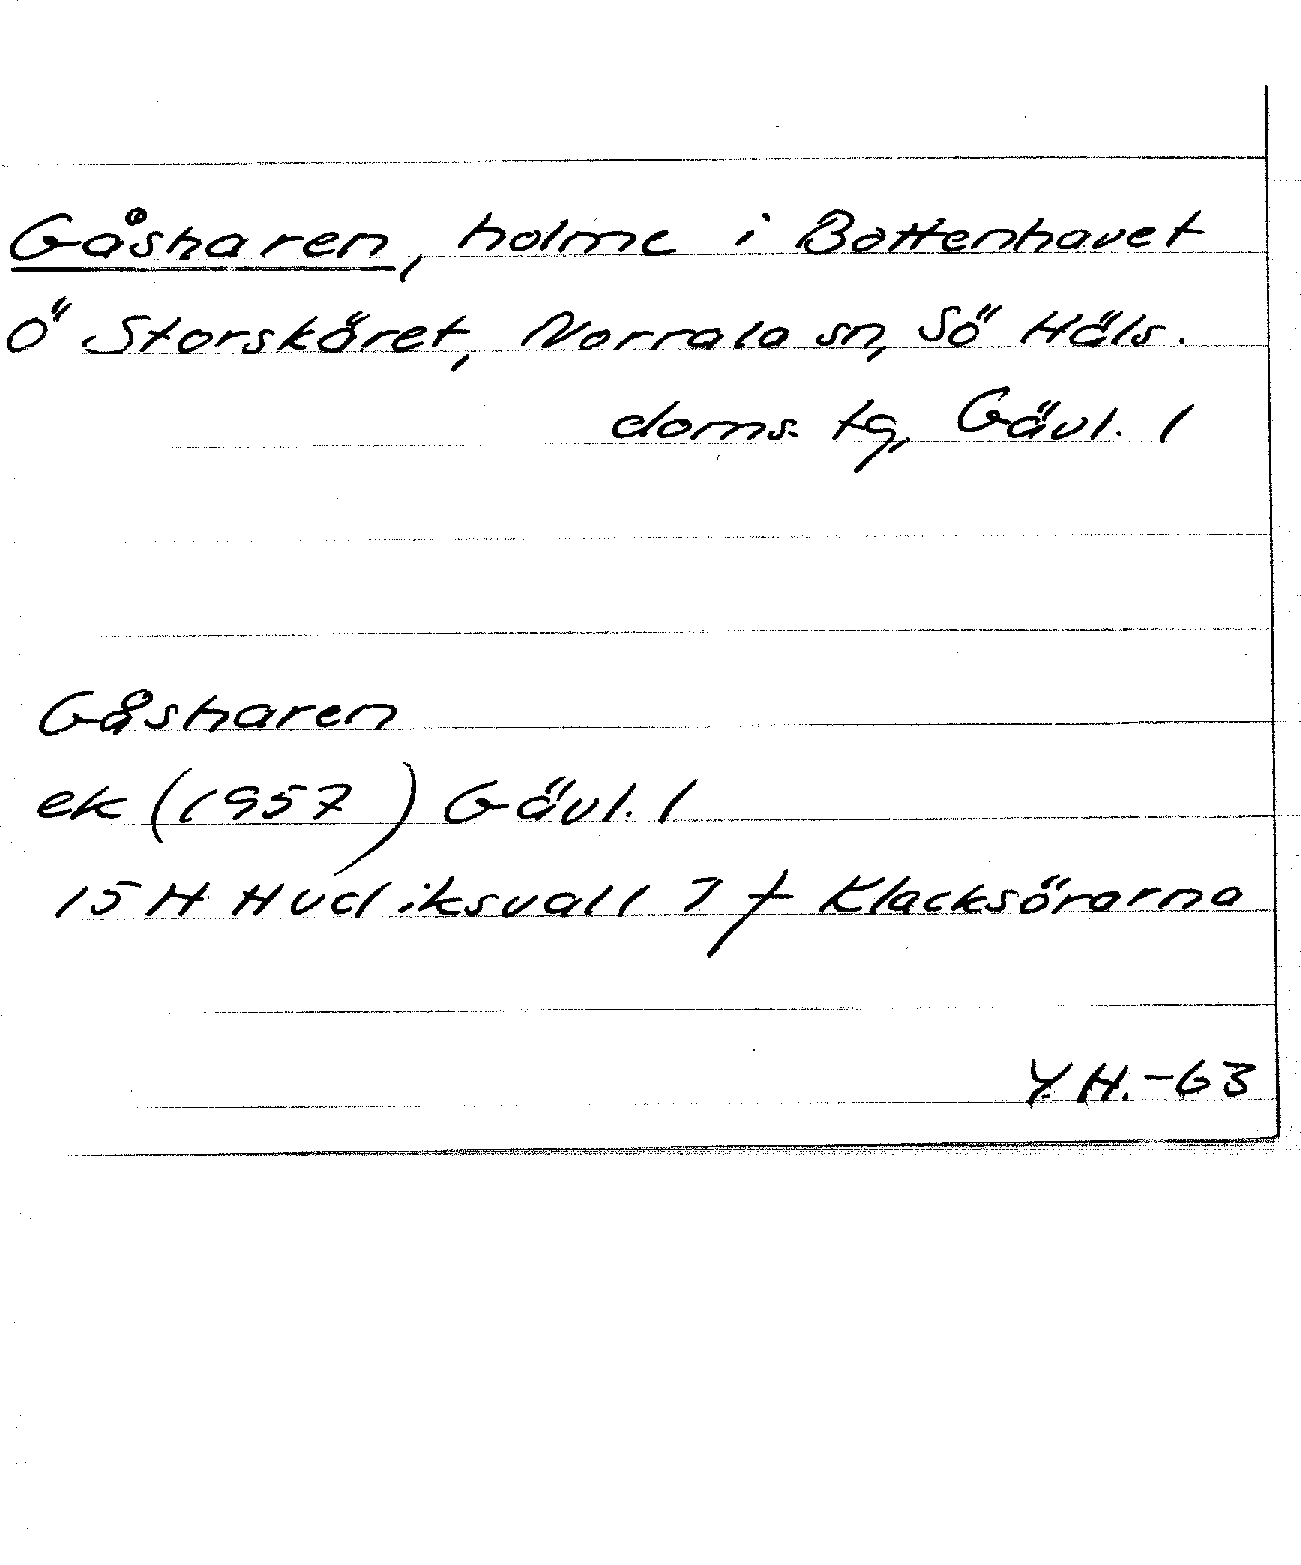 Gåsharen, holme i Bottenhavet
Ö Storskäret, Norrala sn, Sö Häls.
doms. tg, Gävl. l
Gåsharen
ek (1957) Gävl. l
15 H Hudiksvall 7 f Klacksörarna
Y.H.-63